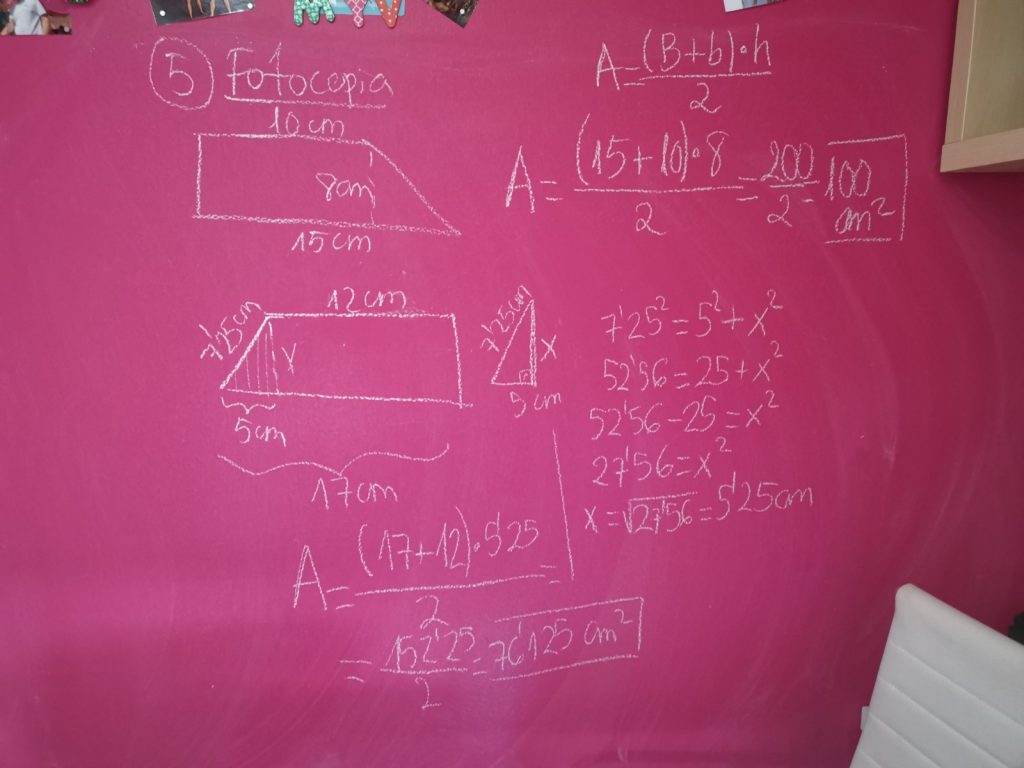 5 Fotocopia
10 cm
8cm
15 cm
A = (B+b)·h / 2
A = (15+10)·8 / 2 = 200 / 2 = 100 cm²
12 cm
7'25cm
x
5cm
17cm
7'25cm
x
5 cm
7'25² = 5² + x²
52'56 = 25 + x²
52'56 - 25 = x²
27'56 = x²
x = √27'56 = 5'25cm
A = (17+12)·5'25 / 2 =
= 152'25 / 2 = 76'125 cm²
M Y